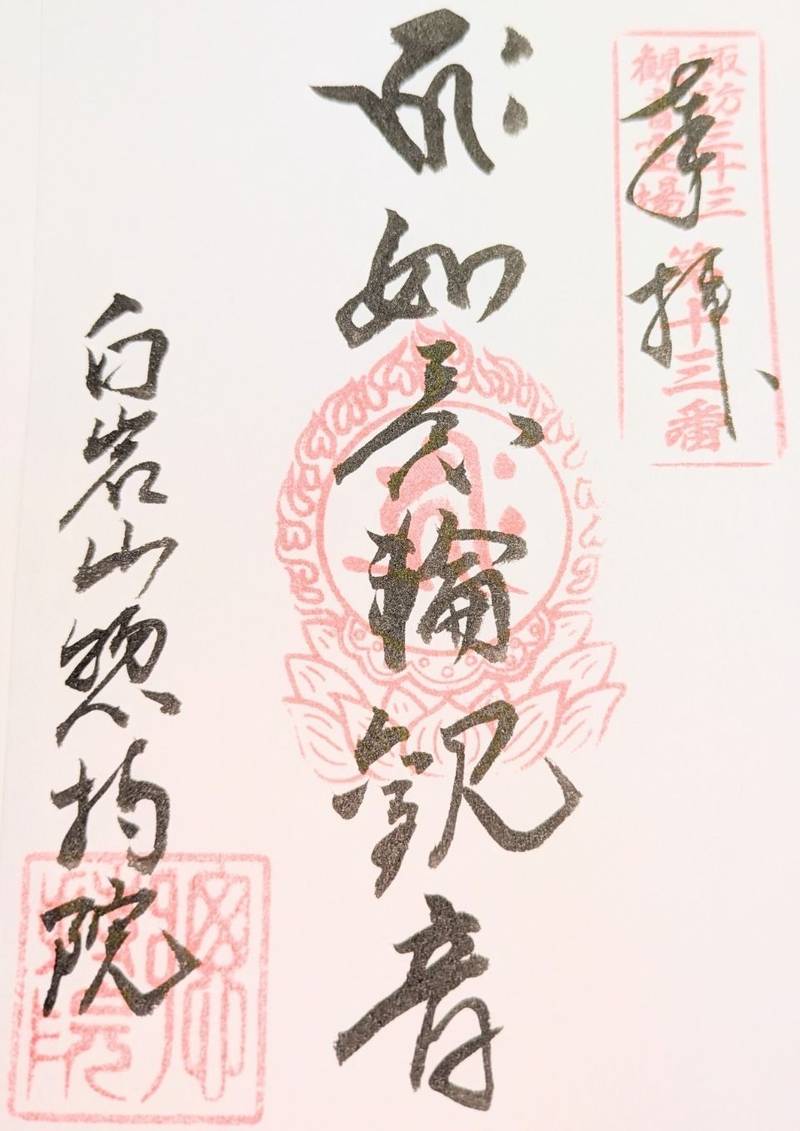 奉拝
諏訪三十三
観音霊場
第十三番
如意輪観音
白岩山惣持院